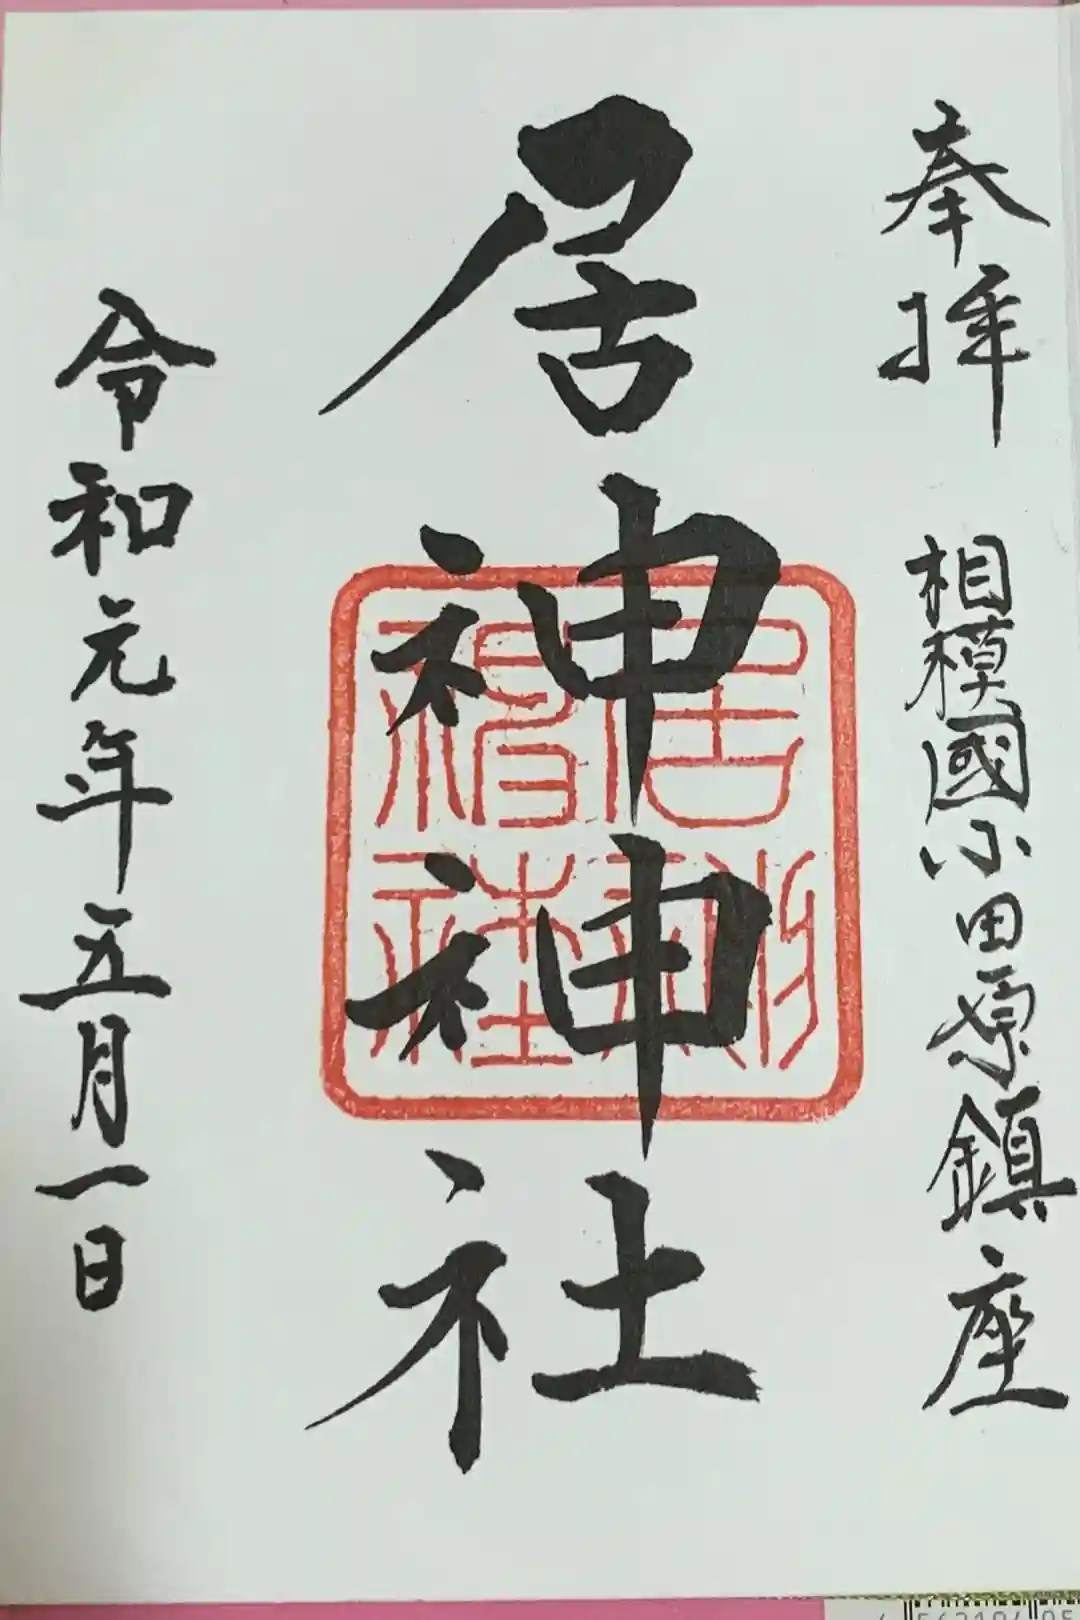 奉拝
相模國小田原鎮座
居神神社
居神神社
令和元年五月一日